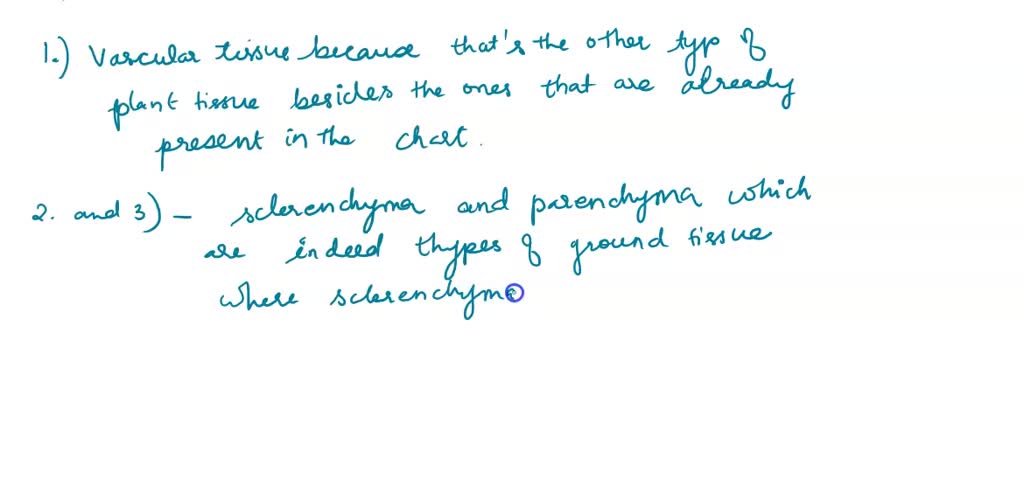 1.) Vascular tissue because that's the other typ of
plant tissue besides the ones that are already
present in the chart.
2. and 3) - sclerenchyma and parenchyma which
are indeed thypes of ground tissue
where sclerenchyma